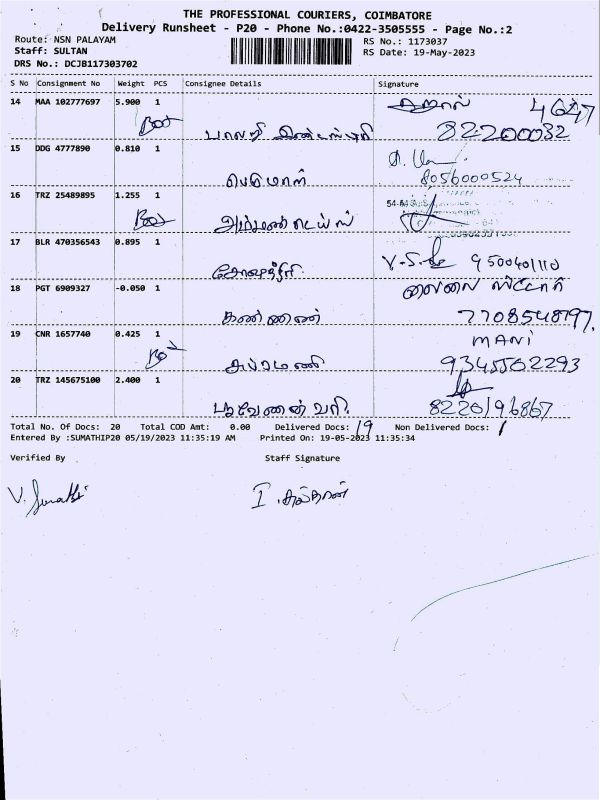 THE PROFESSIONAL COURIERS, COIMBATORE
Delivery Runsheet - P20 - Phone No.:0422-3505555 - Page No.:2
Route: NSN PALAYAM RS No.: 1173037
Staff: SULTAN RS Date: 19-May-2023
DRS No.: DCJB117303702
S No Consignment No Weight PCS Consignee Details Signature
14 MAA 102777697 5.900 1
Box
82200032
15 DDG 4777890 0.810 1
பெருமாள் 8056000524
16 TRZ 25489895 1.255 1
Box
17 BLR 470356543 0.895 1
V.S. 9500401110
18 PGT 6909327 -0.050 1
கண்ணன் 7708548797.
19 CNR 1657740 0.425 1 MANI
Box 9345502293
20 TRZ 145675100 2.400 1
8220196867
Total No. Of Docs: 20 Total COD Amt: 0.00 Delivered Docs: 19 Non Delivered Docs: 1
Entered By :SUMATHIP20 05/19/2023 11:35:19 AM Printed On: 19-05-2023 11:35:34
Verified By Staff Signature
V. Sumathi I. சுல்தான்